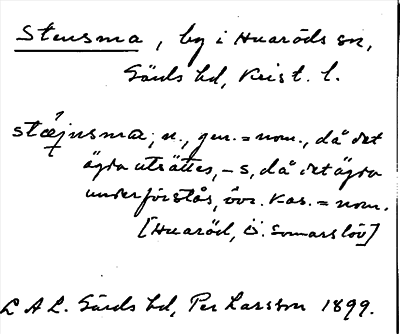 Stensma, by i Huaröds sn,
Gärds hd, Krist. l.
stæjnsma; n., gen. = nom., då det
ägda utsättes, -s, då det ägda
underförstås, övr. kas. = nom.
[Huaröd, Ö. Sönnarslöv]
L A L. Gärds hd, Per Larsson 1899.